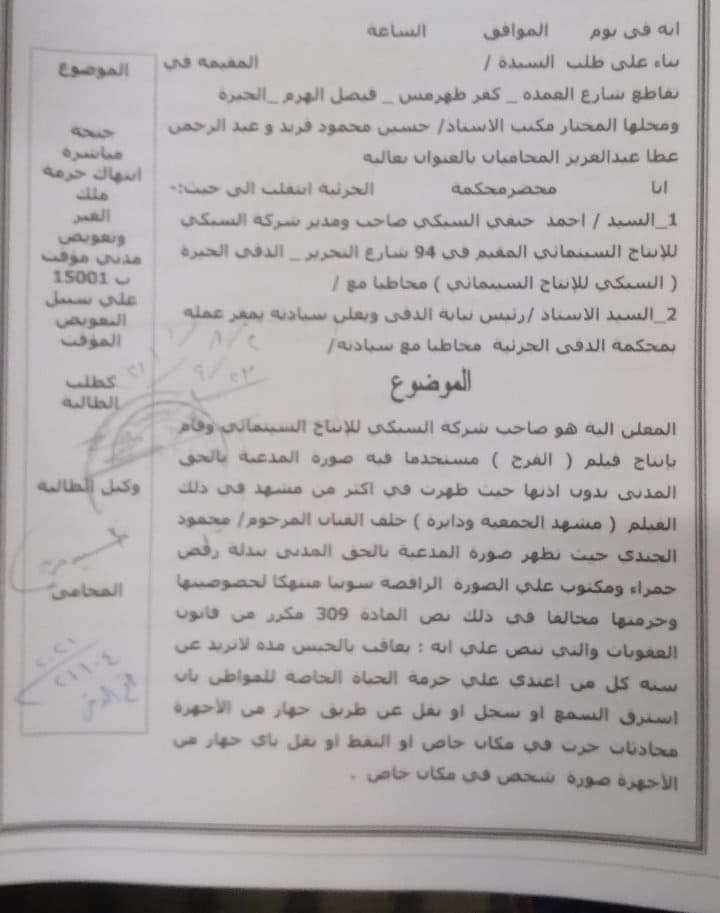 انه في يوم الموافق الساعة
بناء على طلب السيدة / المقيمه في
تقاطع شارع العمده _ كفر طهرمس _ فيصل الهرم _الجيزة
ومحلها المختار مكتب الاستاذ/ حسين محمود فريد و عبد الرحمن
عطا عبدالعزيز المحاميان بالعنوان بعاليه
انا محضرمحكمة الجزئية انتقلت الى حيث:-
1_السيد / احمد حنفي السبكي صاحب ومدير شركة السبكي
للإنتاج السينمائي المقيم في 94 شارع التحرير _ الدقى الجيزة
( السبكي للإنتاج السينمائي ) مخاطبا مع /
2_السيد الاستاذ /رئيس نيابة الدقى ويعلن سيادته بمقر عمله
بمحكمة الدقى الجزئية مخاطبا مع سيادته/
الموضوع
المعلن اليه هو صاحب شركة السبكي للإنتاج السينمائي وقام
بإنتاج فيلم ( الفرح ) مستخدما فيه صورة المدعية بالحق
المدنى بدون اذنها حيث ظهرت في اكثر من مشهد في ذلك
الفيلم ( مشهد الجمعية ودايرة ) خلف الفنان المرحوم/ محمود
الجندي حيث تظهر صورة المدعية بالحق المدنى ببدلة رقص
حمراء ومكتوب علي الصورة الراقصة سونيا منتهكا لخصوصيتها
وحرمتها مخالفا في ذلك نص المادة 309 مكرر من قانون
العقوبات والتي تنص علي انه : يعاقب بالحبس مده لاتزيد عن
سنه كل من اعتدي علي حرمة الحياة الخاصة للمواطن بان
استرق السمع او سجل او نقل عن طريق جهاز من الأجهزة
محادثات جرت في مكان خاص او التقط او نقل باى جهاز من
الأجهزة صورة شخص في مكان خاص .
الموضوع
جنحة
مباشرة
انتهاك حرمة
ملك
الغير
وتعويض
مدني مؤقت
ب 15001
علي سبيل
التعويض
المؤقت
كطلب
الطالبه
وكيل الطالبه
المحامى